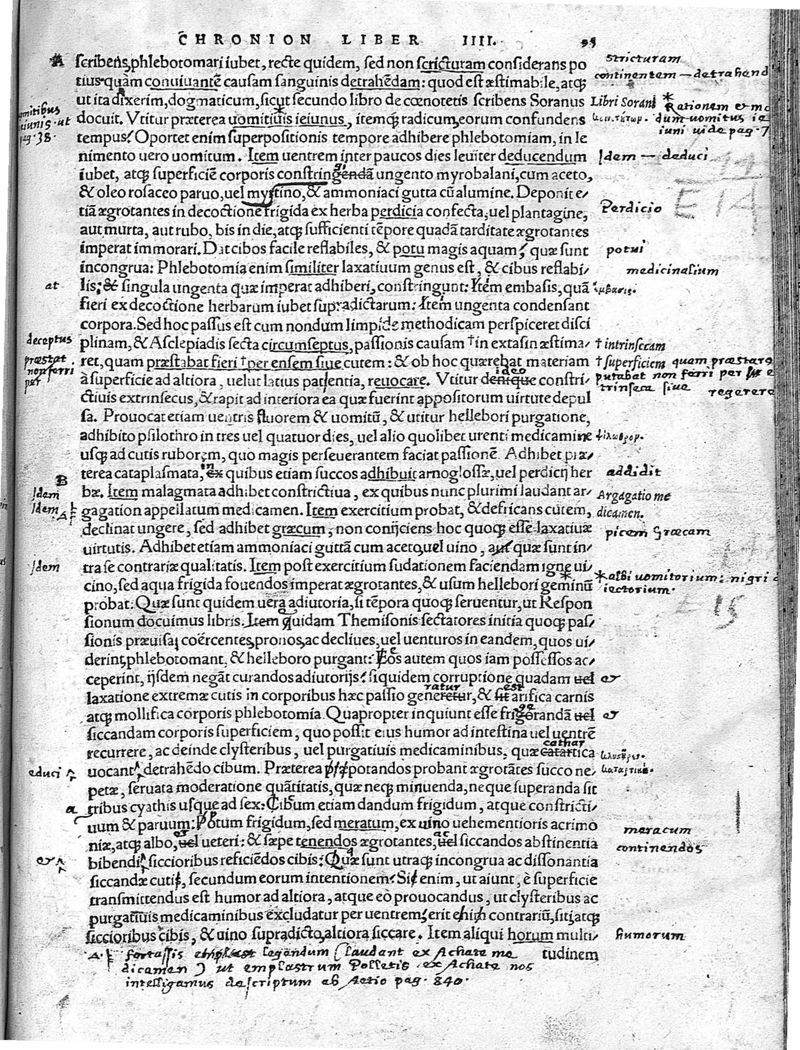 CHRONION LIBER IIII. 95
scribens, phlebotomari iubet, recte quidem, sed non scricturam considerans po
tius quàm conuiuantē causam sanguinis detrahēdam: quod est æstimabile, atq;
ut ita dixerim, dogmaticum, sicut secundo libro de cœnotetis scribens Soranus
docuit. Vtitur præterea uomitiuis ieiunus, itemq; radicum, eorum confundens
tempus. Oportet enim superpositionis tempore adhibere phlebotomiam, in le
nimento uero uomitum. Item uentrem inter paucos dies leuiter deducendum
iubet, atq; superficiē corporis constringendā ungento myrobalani, cum aceto,
& oleo rosaceo paruo, uel mystino, & ammoniaci gutta cū alumine. Deponit e-
tiā ægrotantes in decoctione frigida ex herba perdicia confecta, uel plantagine,
aut murta, aut rubo, bis in die, atq; sufficienti tēpore quadā tarditate ægrotantes
imperat immorari. Dat cibos facile reflabiles, & potu magis aquam, quæ sunt
incongrua: Phlebotomia enim similiter laxatiuum genus est, & cibus reflabi-
lis: & singula ungenta quæ imperat adhiberi, constringunt: Item embasis, quā
fieri ex decoctione herbarum iubet supradictarum: Item ungenta condensant
corpora. Sed hoc passus est cum nondum limpide methodicam perspiceret disci
plinam, & Asclepiadis secta circumseptus, passionis causam † in extasin æstima-
ret, quam præstabat fieri † per ensem siue cutem: & ob hoc quærebat materiam
à superficie ad altiora, uelut latius patentia, reuocare. Vtitur denique constri-
ctiuis extrinsecus, & rapit ad interiora ea quæ fuerint appositorum uirtute depul
sa. Prouocat etiam uentris fluorem & uomitū, & utitur hellebori purgatione,
adhibito psilothro in tres uel quatuor dies, uel alio quolibet urenti medicamine
usq; ad cutis ruborem, quo magis perseuerantem faciat passionē. Adhibet præ-
terea cataplasmata, ex quibus etiam succos adhibuit arnoglossæ, uel perdicij her
bæ. Item malagmata adhibet constrictiua, ex quibus nunc plurimi laudant ar-
gagation appellatum medicamen. Item exercitium probat, & defricans cutem,
declinat ungere, sed adhibet græcum, non conijciens hoc quoq; esse laxatiuæ
uirtutis. Adhibet etiam ammoniaci guttā cum aceto, uel uino, aut quæ sunt in-
tra se contrariæ qualitatis. Item post exercitium sudationem faciendam igne ui-
cino, sed aqua frigida fouendos imperat ægrotantes, & usum hellebori geminū
probat: Quæ sunt quidem uera adiutoria, si tēpora quoq; seruentur, ut Respon
sionum docuimus libris. Item quidam Themisonis sectatores initia quoq; pas-
sionis præuisa, coërcentes, pronos, ac decliues, uel uenturos in eandem, quos ui-
derint, phlebotomant, & helleboro purgant: Eos autem quos iam possessos ac-
ceperint, ijsdem negāt curandos adiutorijs: siquidem corruptione quadam uel
laxatione extremæ cutis in corporibus hæc passio generetur, & sit arifica carnis
atq; mollifica corporis phlebotomia. Quapropter inquiunt esse frigorandā uel
siccandam corporis superficiem, quo possit eius humor ad intestina uel uentrē
recurrere, ac deinde clysteribus, uel purgatiuis medicaminibus, quæ catartica
uocant, detrahēdo cibum. Præterea potandos probant ægrotātes succo ne-
petæ, seruata moderatione quātitatis, quæ neq; minuenda, neque superanda sit
tribus cyathis usque ad sex: Cibum etiam dandum frigidum, atque constricti-
uum & paruum: Potum frigidum, sed meratum, ex uino uehementioris acrimo
niæ, atq; albo, uel ueteri: & sæpe tenendos ægrotantes, uel siccandos abstinentia
bibendi, siccioribus reficiēdos cibis: Quæ sunt utraq; incongrua ac dissonantia
siccandæ cutis, secundum eorum intentionem: Si enim, ut aiunt, è superficie
transmittendus est humor ad altiora, atque eò prouocandus, ut clysteribus ac
purgatiuis medicaminibus excludatur per uentrem, erit enim contrariū, siti, atq;
siccioribus cibis, & uino supradicto, altiora siccare. Item aliqui horum multi-
tudinem
A
stricturam
continentem — detrahend
Libri Sorani
Rationem
dum uomitus ie
iuni uide pag. 7
pag. 38.
Idem — deduci
E 14
Perdicio
potui
medicinalium
at
ἔμβασις.
deceptus
† intrinsecam
præstat.
non ferri
per
† superficiem quam præstare
putabat non ferri per
trinseca siue regerere
ideo
ψίλωθρον.
in
addidit
B
Idem
Idem
Argagatio me
dicamen.
picem Græcam
Idem
* albi uomitorium: nigri
iectorium.
E 15
uel
er
ratur
est
er
cathar
educi
κλυστῆρες.
καταρτικα.
a
meracum
er
ac
continendos
er
humorum
fortassis emplast legendum (laudant ex Achate me
dicamen) ut emplastrum Polletis ex Achate nos
intelligamus descriptum ab Aetio pag. 840.